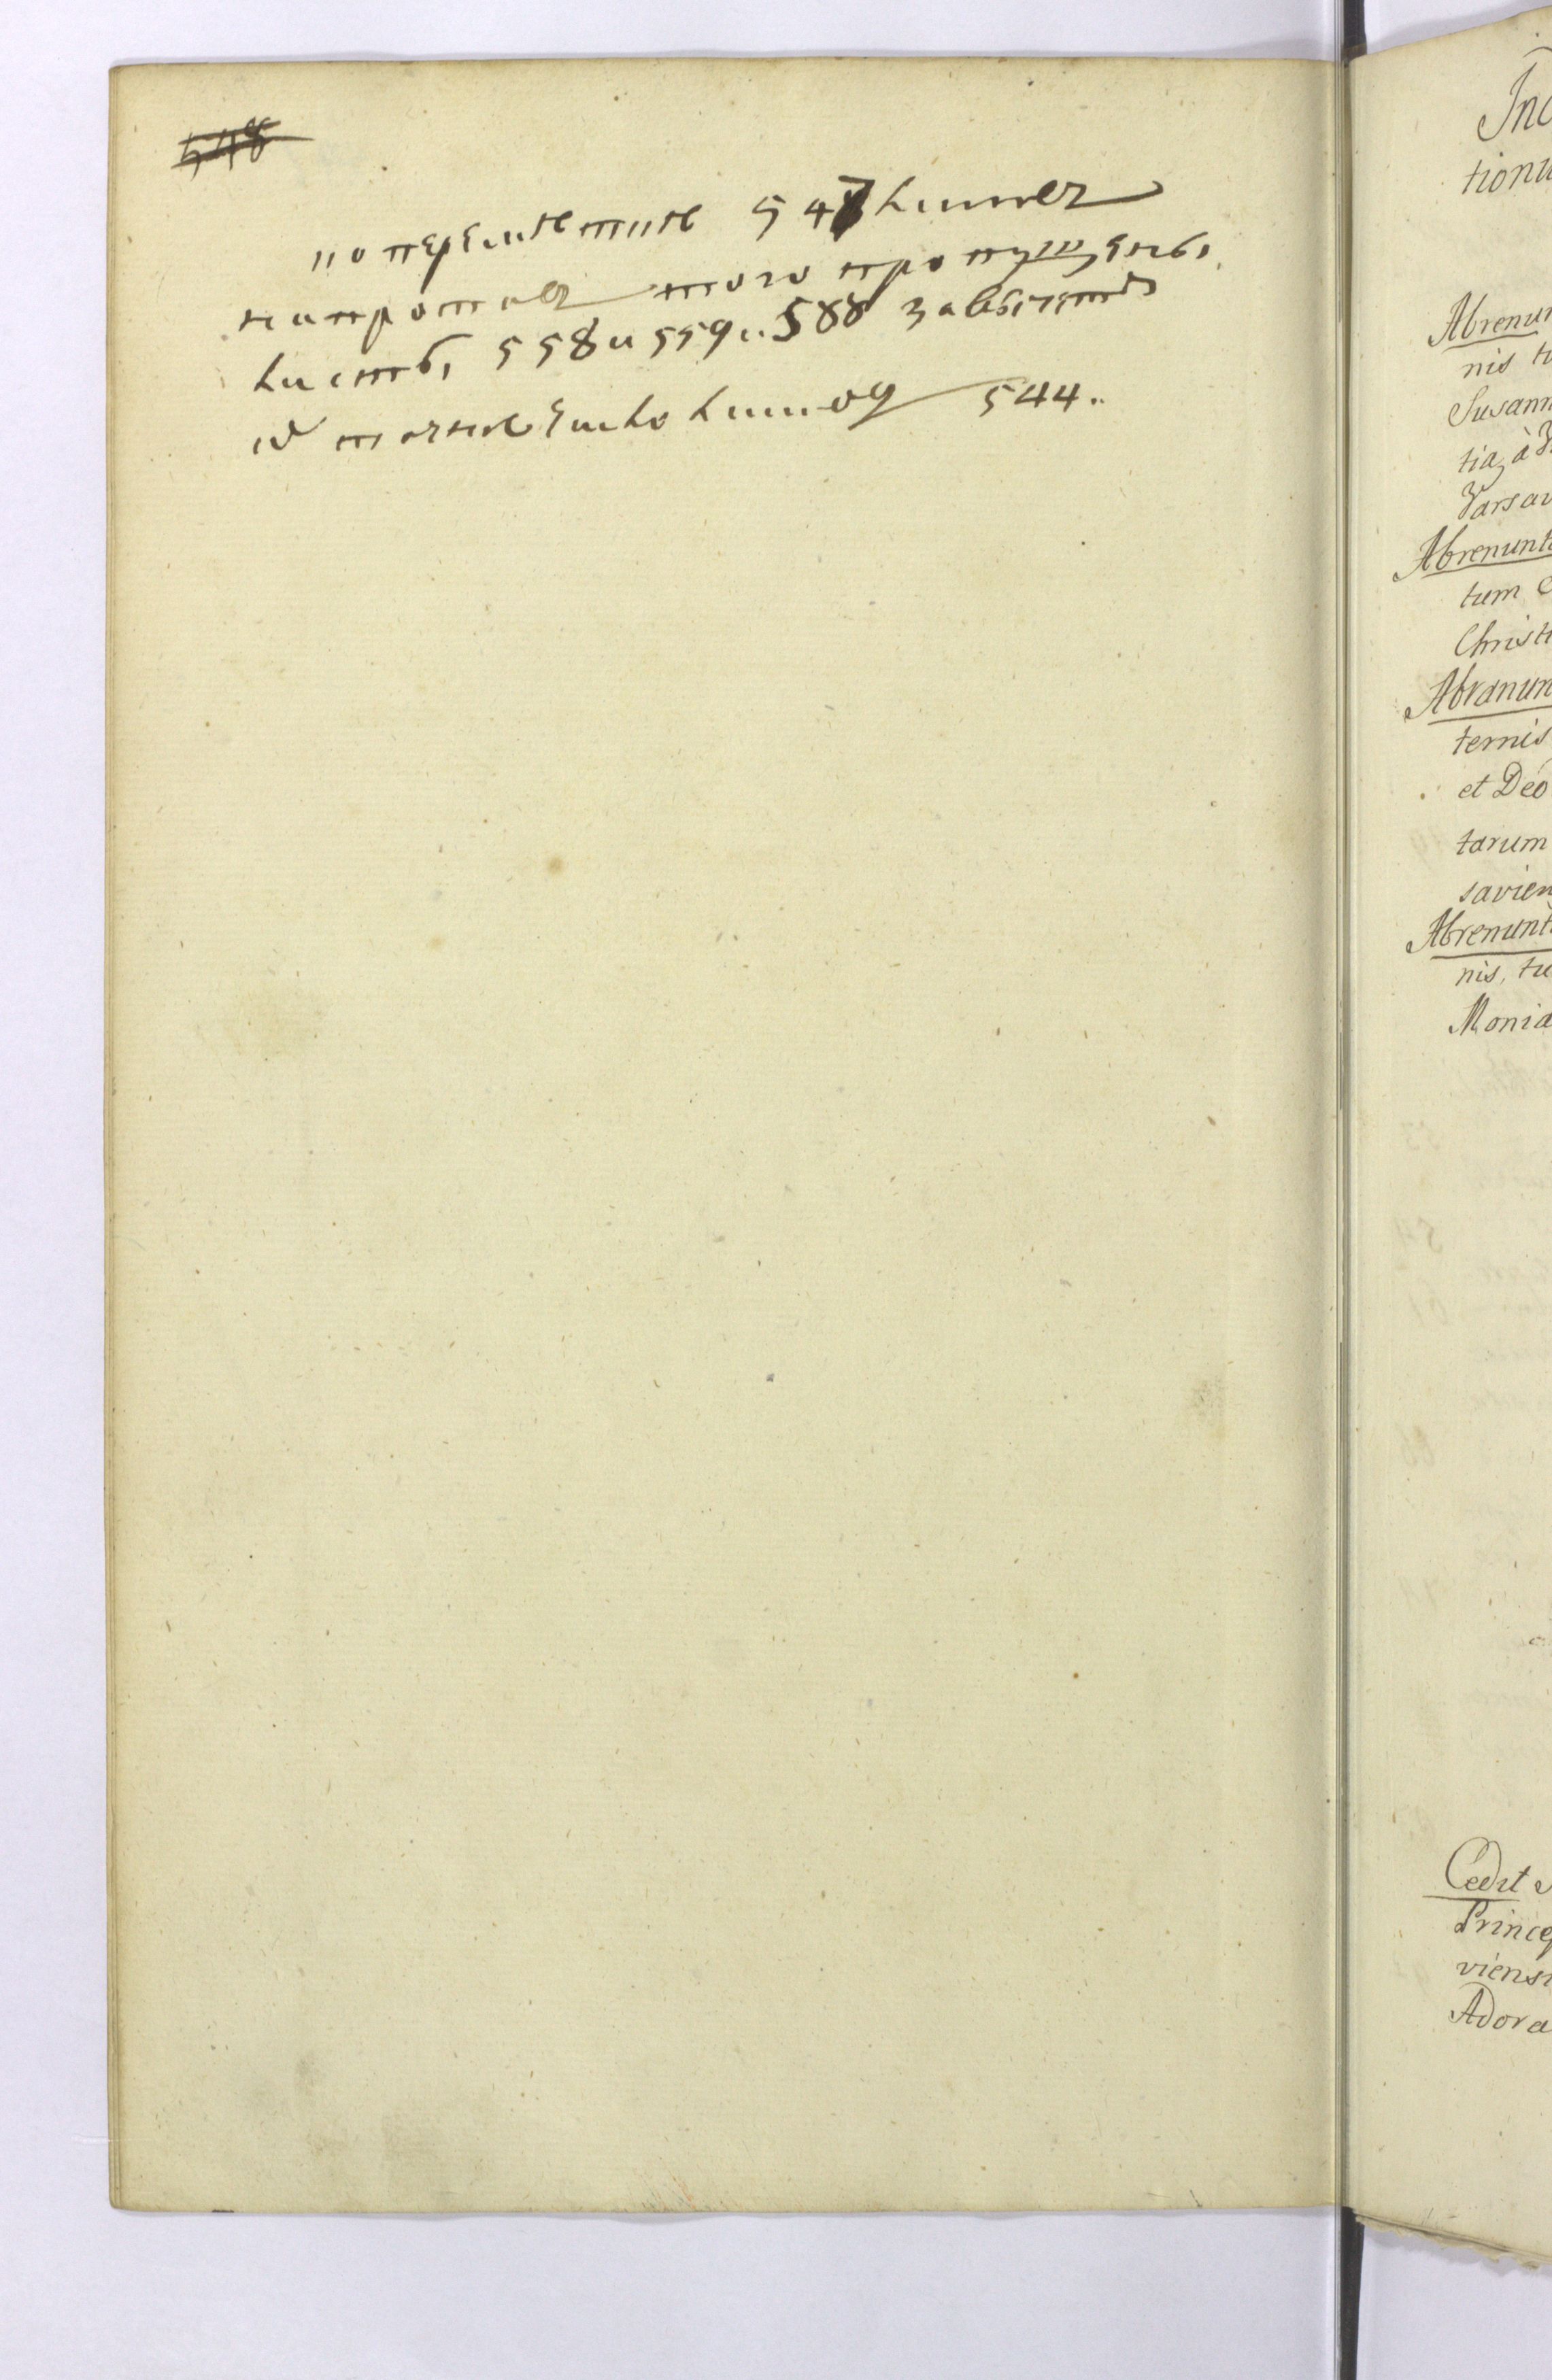 548
по пересметке 547 листов
напротив того пропущены
листы 558 и 559 и 588 за вычетом
и точное число листов 544.
Ind
tionu
Abrenun
nis tu
Susann
tia, à
Varsav
Abrenunt
tum
Christi
Abranun
ternis
et Deo
tarum
savien
Abrenunt
nis, tu
Monia
Cedit
Princep
viensi
Adora